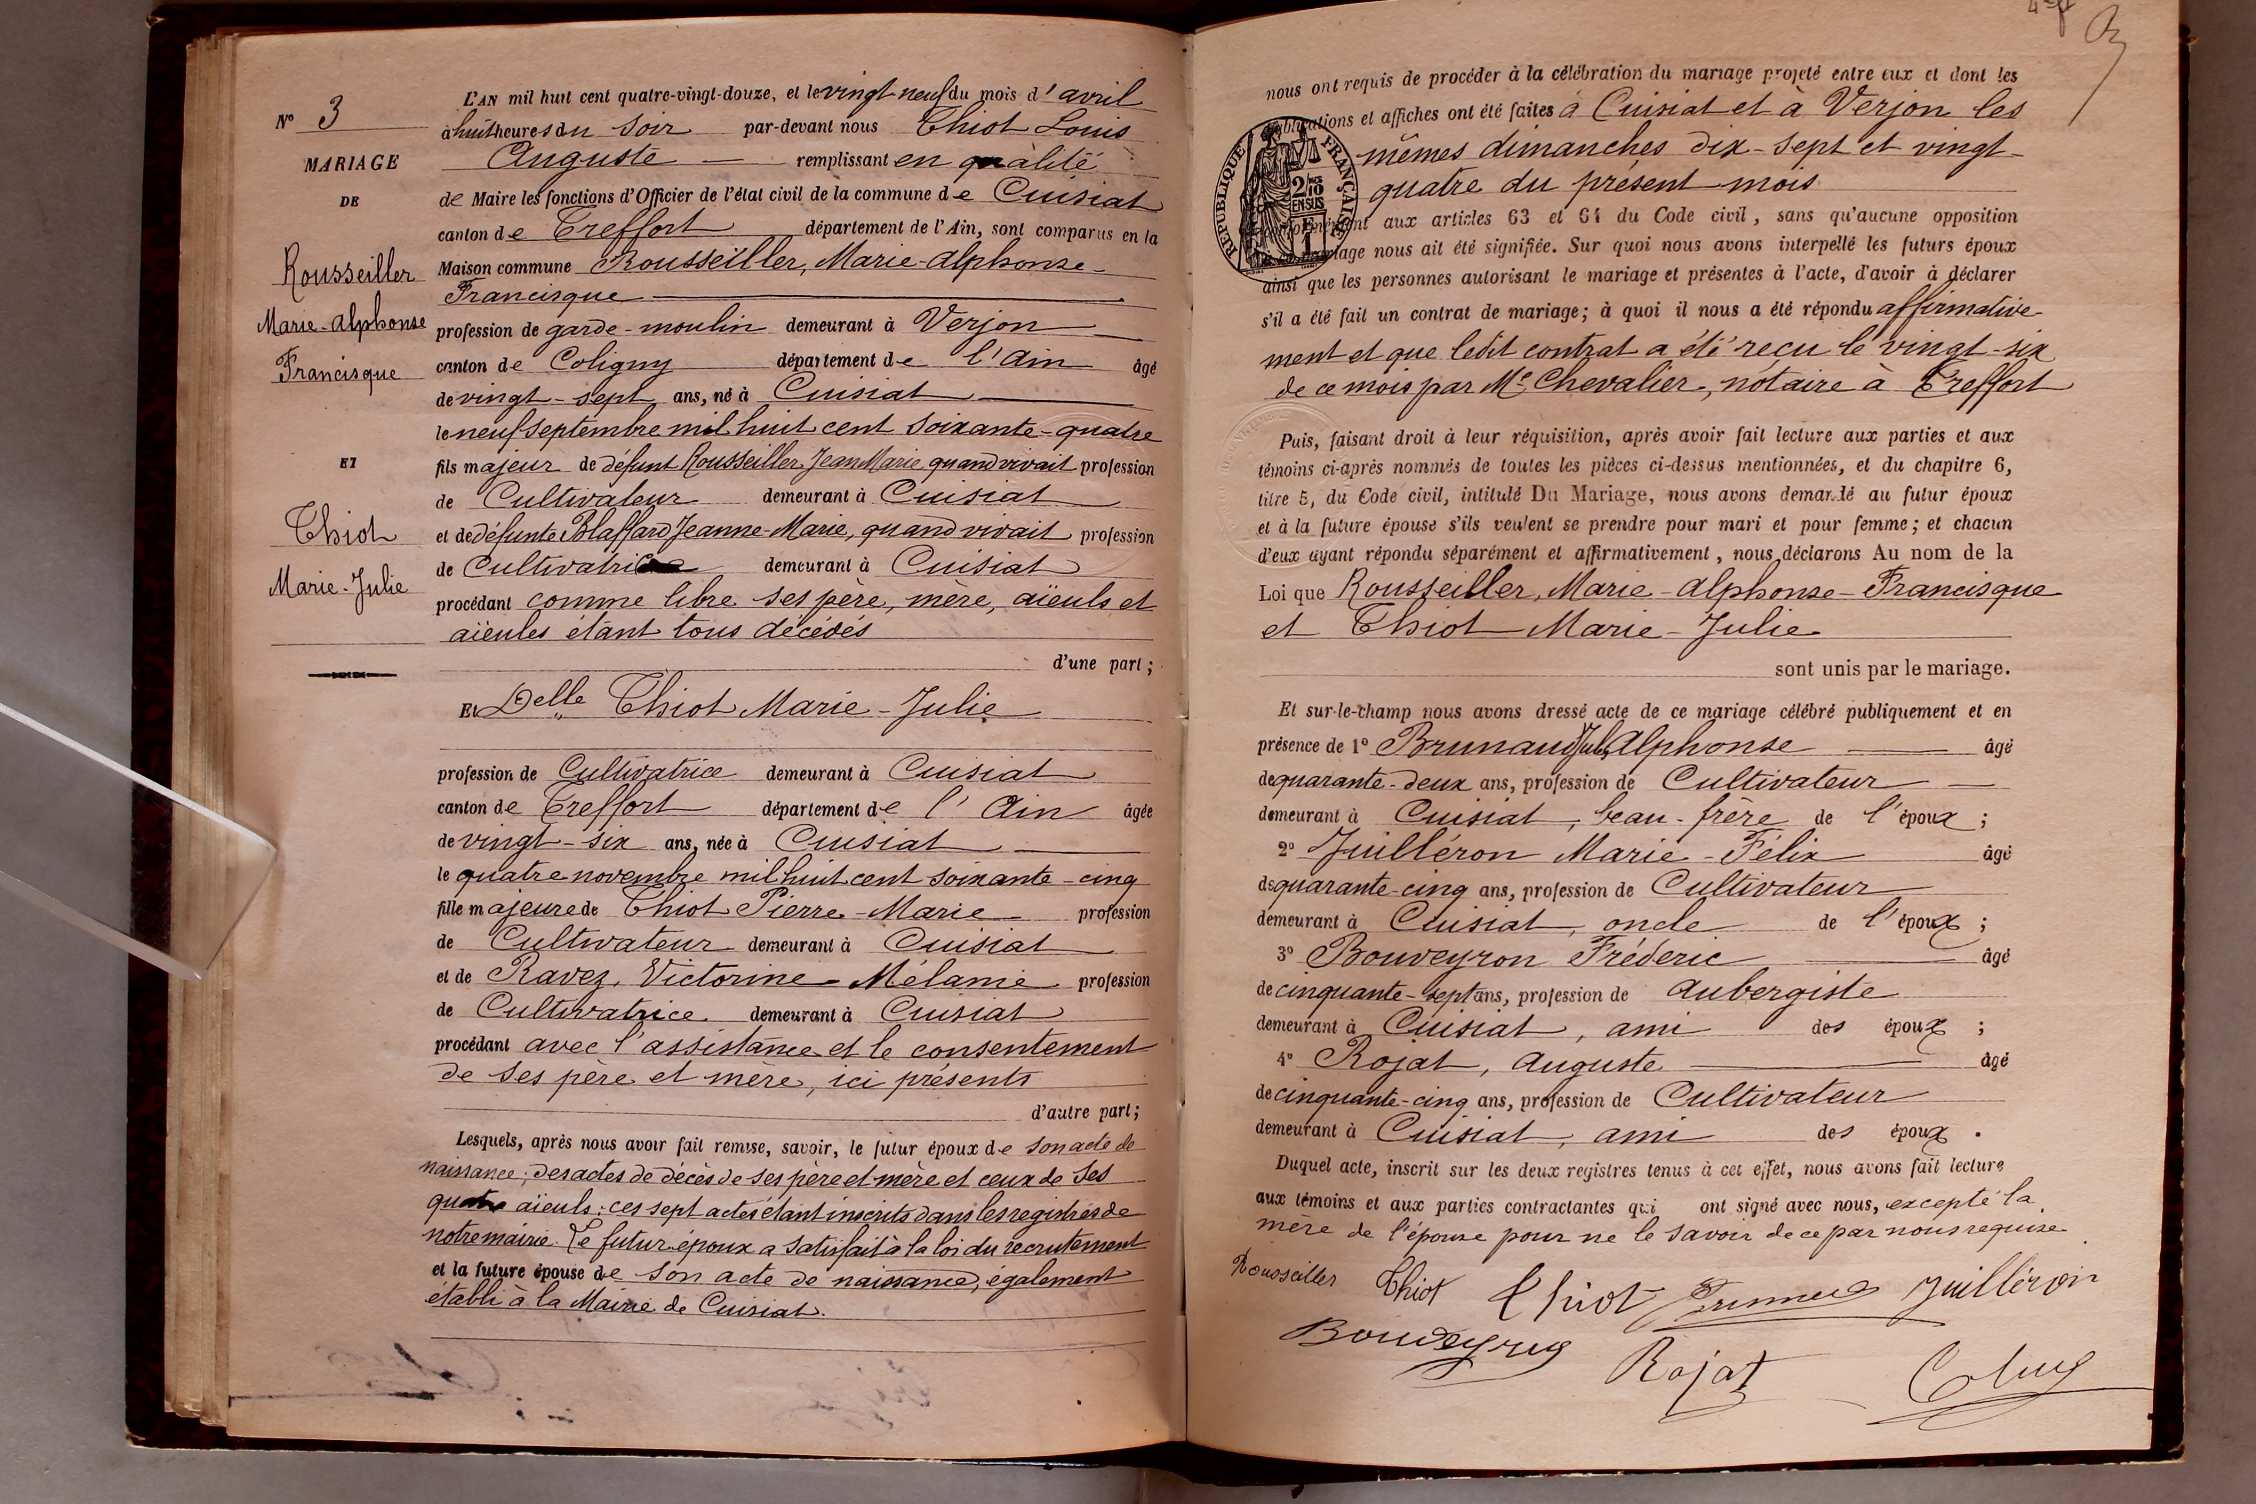 N° 3
MARIAGE
DE
Rousseiller
Marie-Alphonse
Francisque
ET
Thiot
Marie-Julie
L'AN mil huit cent quatre-vingt-douze, et le vingt neuf du mois d'avril
à huit heures du soir par-devant nous Thiot Louis
Auguste remplissant en qualité
de Maire les fonctions d'Officier de l'état civil de la commune de Cuisiat
canton de Treffort département de l'Ain, sont comparus en la
Maison commune Rousseiller, Marie-Alphonse-
Francisque
profession de garde-moulin demeurant à Verjon
canton de Coligny département de l'Ain âgé
de vingt-sept ans, né à Cuisiat
le neuf septembre mil huit cent soixante-quatre
fils majeur de défunt Rousseiller Jean Marie quand vivait profession
de Cultivateur demeurant à Cuisiat
et de défunte Blaffard Jeanne-Marie, quand vivait profession
de Cultivatrice demeurant à Cuisiat
procédant comme libre ses père, mère, aïeuls et
aïeules étant tous décédés
d'une part;
Et Delle Thiot Marie-Julie
profession de Cultivatrice demeurant à Cuisiat
canton de Treffort département de l'Ain âgée
de vingt-six ans, née à Cuisiat
le quatre novembre mil huit cent soixante-cinq
fille majeure de Thiot Pierre-Marie profession
de Cultivateur demeurant à Cuisiat
et de Ravez, Victorine-Mélanie profession
de Cultivatrice demeurant à Cuisiat
procédant avec l'assistance et le consentement
de ses père et mère, ici présents
d'autre part;
Lesquels, après nous avoir fait remise, savoir, le futur époux de son acte de
naissance; des actes de décès de ses père et mère et ceux de ses
quatre aïeuls: ces sept actes étant inscrits dans les registres de
notre mairie. Le futur époux a satisfait à la loi du recrutement
et la future épouse de son acte de naissance, également
établi à la Mairie de Cuisiat.
nous ont requis de procéder à la célébration du mariage projeté entre eux et dont les
publications et affiches ont été faites à Cuisiat et à Verjon les
mêmes dimanches dix-sept et vingt-
quatre du présent mois
RÉPUBLIQUE FRANÇAISE
2/10 EN SUS
conformément aux articles 63 et 64 du Code civil, sans qu'aucune opposition
au mariage nous ait été signifiée. Sur quoi nous avons interpellé les futurs époux
ainsi que les personnes autorisant le mariage et présentes à l'acte, d'avoir à déclarer
s'il a été fait un contrat de mariage; à quoi il nous a été répondu affirmative-
ment et que ledit contrat a été reçu le vingt-six
de ce mois par Me Chevalier, notaire à Treffort
Puis, faisant droit à leur réquisition, après avoir fait lecture aux parties et aux
témoins ci-après nommés de toutes les pièces ci-dessus mentionnées, et du chapitre 6,
titre 5, du Code civil, intitulé Du Mariage, nous avons demandé au futur époux
et à la future épouse s'ils veulent se prendre pour mari et pour femme; et chacun
d'eux ayant répondu séparément et affirmativement, nous déclarons Au nom de la
Loi que Rousseiller, Marie-Alphonse-Francisque
et Thiot Marie-Julie
sont unis par le mariage.
Et sur-le-champ nous avons dressé acte de ce mariage célébré publiquement et en
présence de 1° Brunaud Jules Alphonse âgé
de quarante-deux ans, profession de Cultivateur
demeurant à Cuisiat, beau-frère de l'époux;
2° Juilléron Marie-Félix âgé
de quarante-cinq ans, profession de Cultivateur
demeurant à Cuisiat, oncle de l'époux;
3° Bouveyron Fréderic âgé
de cinquante-sept ans, profession de Aubergiste
demeurant à Cuisiat, ami des époux;
4° Rojat, Auguste âgé
de cinquante-cinq ans, profession de Cultivateur
demeurant à Cuisiat, ami des époux.
Duquel acte, inscrit sur les deux registres tenus à cet effet, nous avons fait lecture
aux témoins et aux parties contractantes qui ont signé avec nous, excepté la
mère de l'épouse pour ne le savoir de ce par nous requise.
Rousseiller Thiot Thiot Juilléron
Rojat